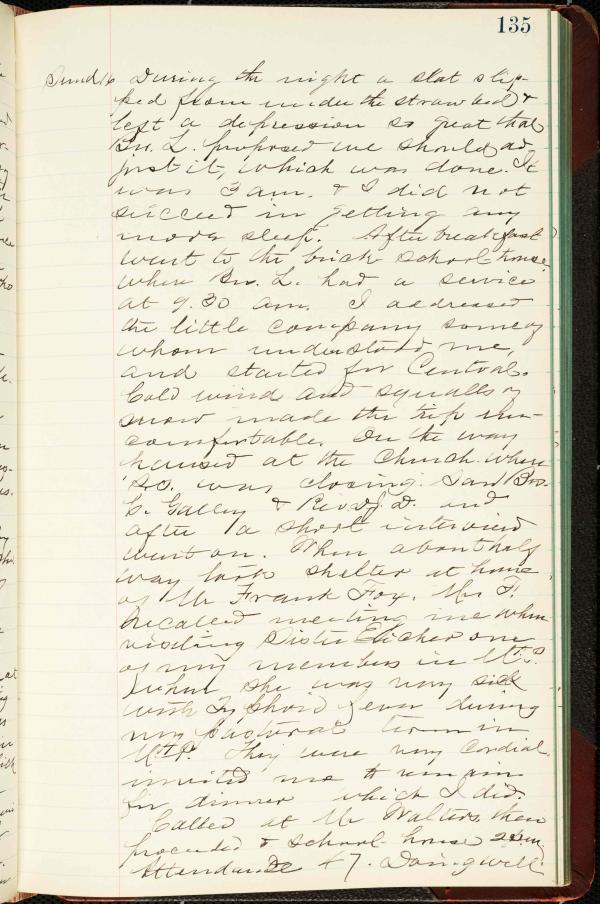 135
Sund 16 During the night a slat slip-
ped from under the straw bed &
left a depression so great that
Bro. L. proposed we should ad-
just it, which was done. It
was 3 am. & I did not
succeed in getting any
more sleep. After breakfast
went to the brick school-house
where Bro. L. had a service
at 9.30 am. I addressed
the little company some of
whom understood me,
and started for Central.
Cold wind and squalls of
snow made the trip un-
comfortable. On the way
paused at the Church where
was closing. Saw Bro.
C. Galley & and
after a short interview
went on. When about half
way took shelter at home
of Mr Frank Fox. Mrs F.
recalled meeting me when
visiting Sister one
of my members in Mt. P.
when she was very sick
with Typhoid fever during
my pastoral term in
Mt. P. They were very cordial
invited me to remain
for dinner which I did.
Called at Mr Walters, then
proceeded to school-house
Attendance 47. Doing well